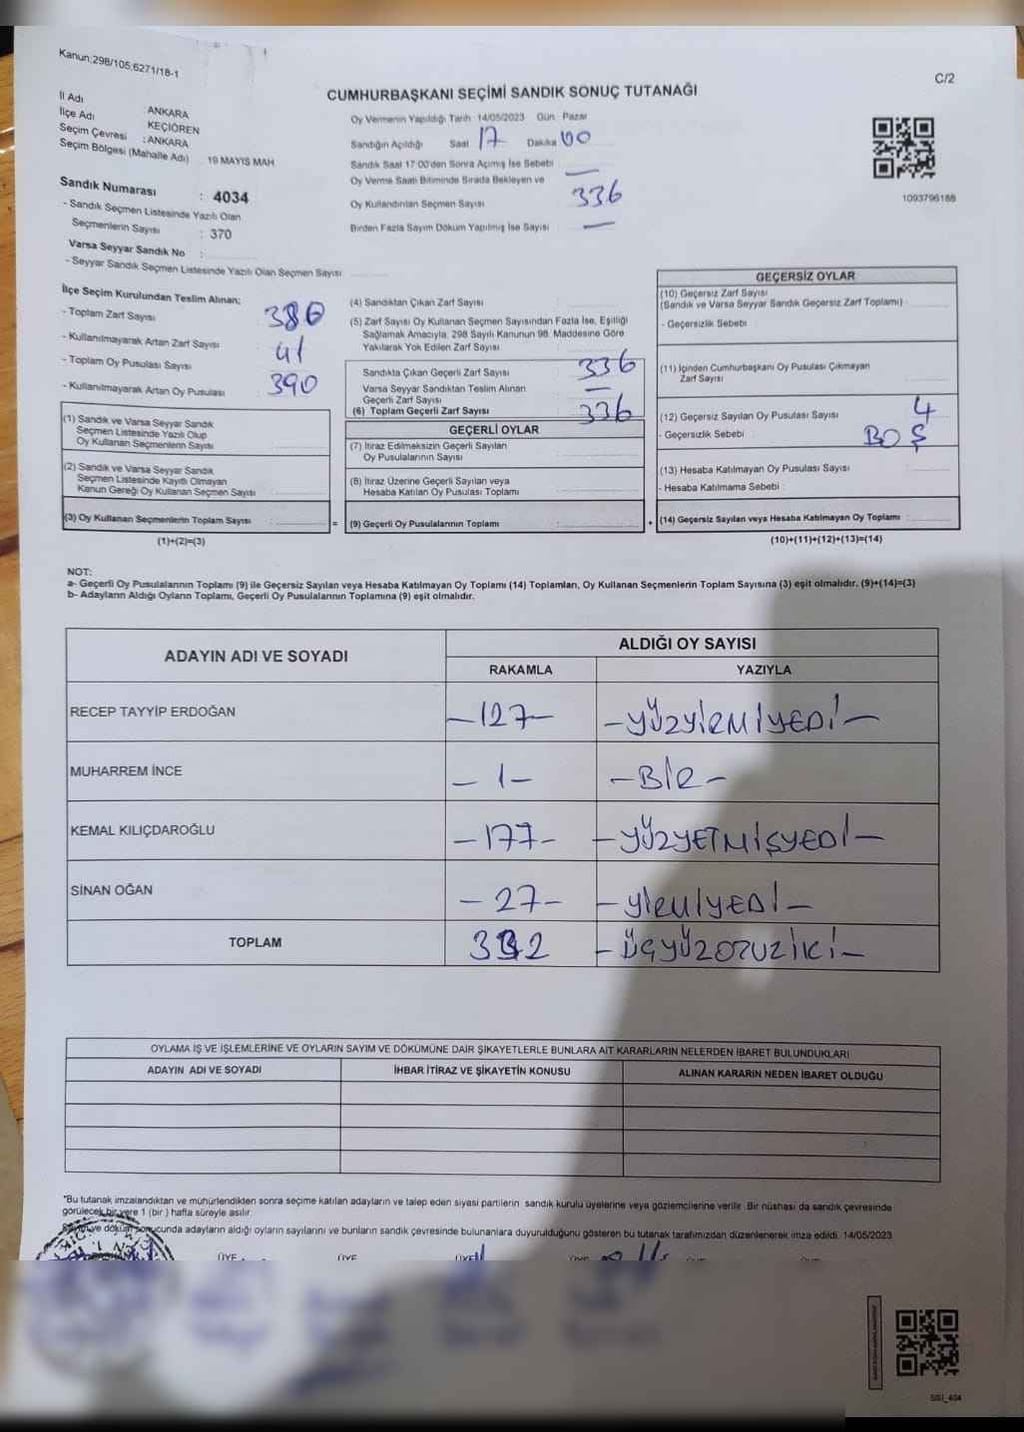 Kanun:298/105,6271/18-1
C/2
CUMHURBAŞKANI SEÇİMİ SANDIK SONUÇ TUTANAĞI
İl Adı ANKARA
İlçe Adı KEÇİÖREN
Seçim Çevresi : ANKARA
Seçim Bölgesi (Mahalle Adı) 19 MAYIS MAH
Sandık Numarası : 4034
- Sandık Seçmen Listesinde Yazılı Olan
Seçmenlerin Sayısı : 370
Varsa Seyyar Sandık No :
- Seyyar Sandık Seçmen Listesinde Yazılı Olan Seçmen Sayısı
Oy Vermenin Yapıldığı Tarih 14/05/2023 Gün Pazar
Sandığın Açıldığı Saat 17 Dakika 00
Sandık Saat 17:00'den Sonra Açımış İse Sebebi
Oy Verme Saati Bitiminde Sırada Bekleyen ve
Oy Kullandırılan Seçmen Sayısı 336
Birden Fazla Sayım Döküm Yapılmış İse Sayısı —
1093796188
İlçe Seçim Kurulundan Teslim Alınan:
- Toplam Zarf Sayısı 380
- Kullanılmayarak Artan Zarf Sayısı 41
- Toplam Oy Pusulası Sayısı
- Kullanılmayarak Artan Oy Pusulası 390
(1) Sandık ve Varsa Seyyar Sandık
Seçmen Listesinde Yazılı Olup
Oy Kullanan Seçmenlerin Sayısı
(2) Sandık ve Varsa Seyyar Sandık
Seçmen Listesinde Kayıtlı Olmayan
Kanun Gereği Oy Kullanan Seçmen Sayısı
(3) Oy Kullanan Seçmenlerin Toplam Sayısı :
(1)+(2)=(3)
(4) Sandıktan Çıkan Zarf Sayısı
(5) Zarf Sayısı Oy Kullanan Seçmen Sayısından Fazla İse, Eşitliği
Sağlamak Amacıyla, 298 Sayılı Kanunun 98. Maddesine Göre
Yakılarak Yok Edilen Zarf Sayısı
Sandıkta Çıkan Geçerli Zarf Sayısı 336
Varsa Seyyar Sandıktan Teslim Alınan
Geçerli Zarf Sayısı —
(6) Toplam Geçerli Zarf Sayısı 336
GEÇERLİ OYLAR
(7) İtiraz Edilmeksizin Geçerli Sayılan
Oy Pusulalarının Sayısı
(8) İtiraz Üzerine Geçerli Sayılan veya
Hesaba Katılan Oy Pusulası Toplamı
= (9) Geçerli Oy Pusulalarının Toplamı :
GEÇERSİZ OYLAR
(10) Geçersiz Zarf Sayısı
(Sandık ve Varsa Seyyar Sandık Geçersiz Zarf Toplamı)
- Geçersizlik Sebebi
(11) İçinden Cumhurbaşkanı Oy Pusulası Çıkmayan
Zarf Sayısı
(12) Geçersiz Sayılan Oy Pusulası Sayısı 4
- Geçersizlik Sebebi BOŞ
(13) Hesaba Katılmayan Oy Pusulası Sayısı
- Hesaba Katılmama Sebebi
+ (14) Geçersiz Sayılan veya Hesaba Katılmayan Oy Toplamı :
(10)+(11)+(12)+(13)=(14)
NOT:
a- Geçerli Oy Pusulalarının Toplamı (9) ile Geçersiz Sayılan veya Hesaba Katılmayan Oy Toplamı (14) Toplamları, Oy Kullanan Seçmenlerin Toplam Sayısına (3) eşit olmalıdır. (9)+(14)=(3)
b- Adayların Aldığı Oyların Toplamı, Geçerli Oy Pusulalarının Toplamına (9) eşit olmalıdır.
ADAYIN ADI VE SOYADI ALDIĞI OY SAYISI
RAKAMLA YAZIYLA
RECEP TAYYİP ERDOĞAN -127- -YÜZYİRMİYEDİ-
MUHARREM İNCE -1- -BİR-
KEMAL KILIÇDAROĞLU -177- -YÜZYETMİŞYEDİ-
SİNAN OĞAN -27- -YİRMİYEDİ-
TOPLAM 332 -ÜÇYÜZOTUZİKİ-
OYLAMA İŞ VE İŞLEMLERİNE VE OYLARIN SAYIM VE DÖKÜMÜNE DAİR ŞİKAYETLERLE BUNLARA AİT KARARLARIN NELERDEN İBARET BULUNDUKLARI
ADAYIN ADI VE SOYADI İHBAR İTİRAZ VE ŞİKAYETİN KONUSU ALINAN KARARIN NEDEN İBARET OLDUĞU
"Bu tutanak imzalandıktan ve mühürlendikten sonra seçime katılan adayların ve talep eden siyasi partilerin sandık kurulu üyelerine veya gözlemcilerine verilir. Bir nüshası da sandık çevresinde
görülecek bir yere 1 (bir) hafta süreyle asılır.
ve döküm sonucunda adayların aldığı oyların sayılarını ve bunların sandık çevresinde bulunanlara duyurulduğunu gösteren bu tutanak tarafımızdan düzenlenerek imza edildi. 14/05/2023
ÜYE ÜYE ÜYE